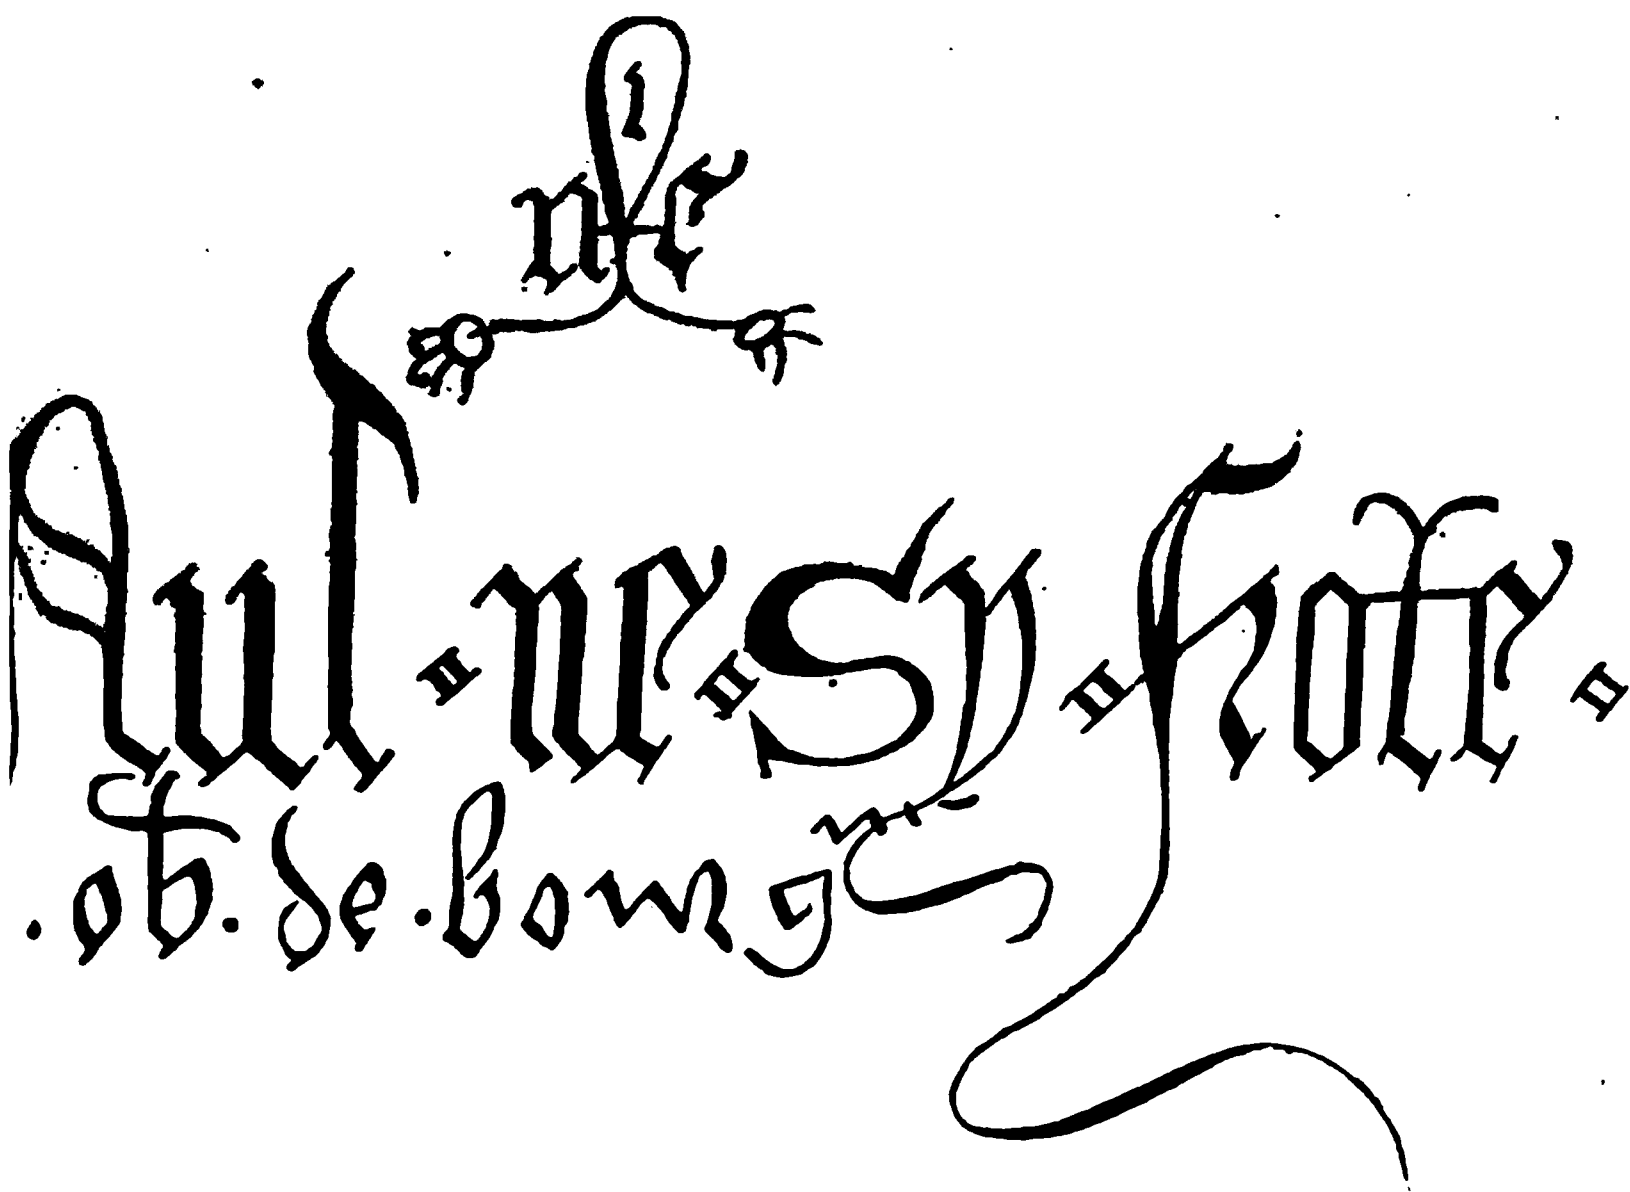 Nul · ne · sy · frote ·
.ob. de .bourg